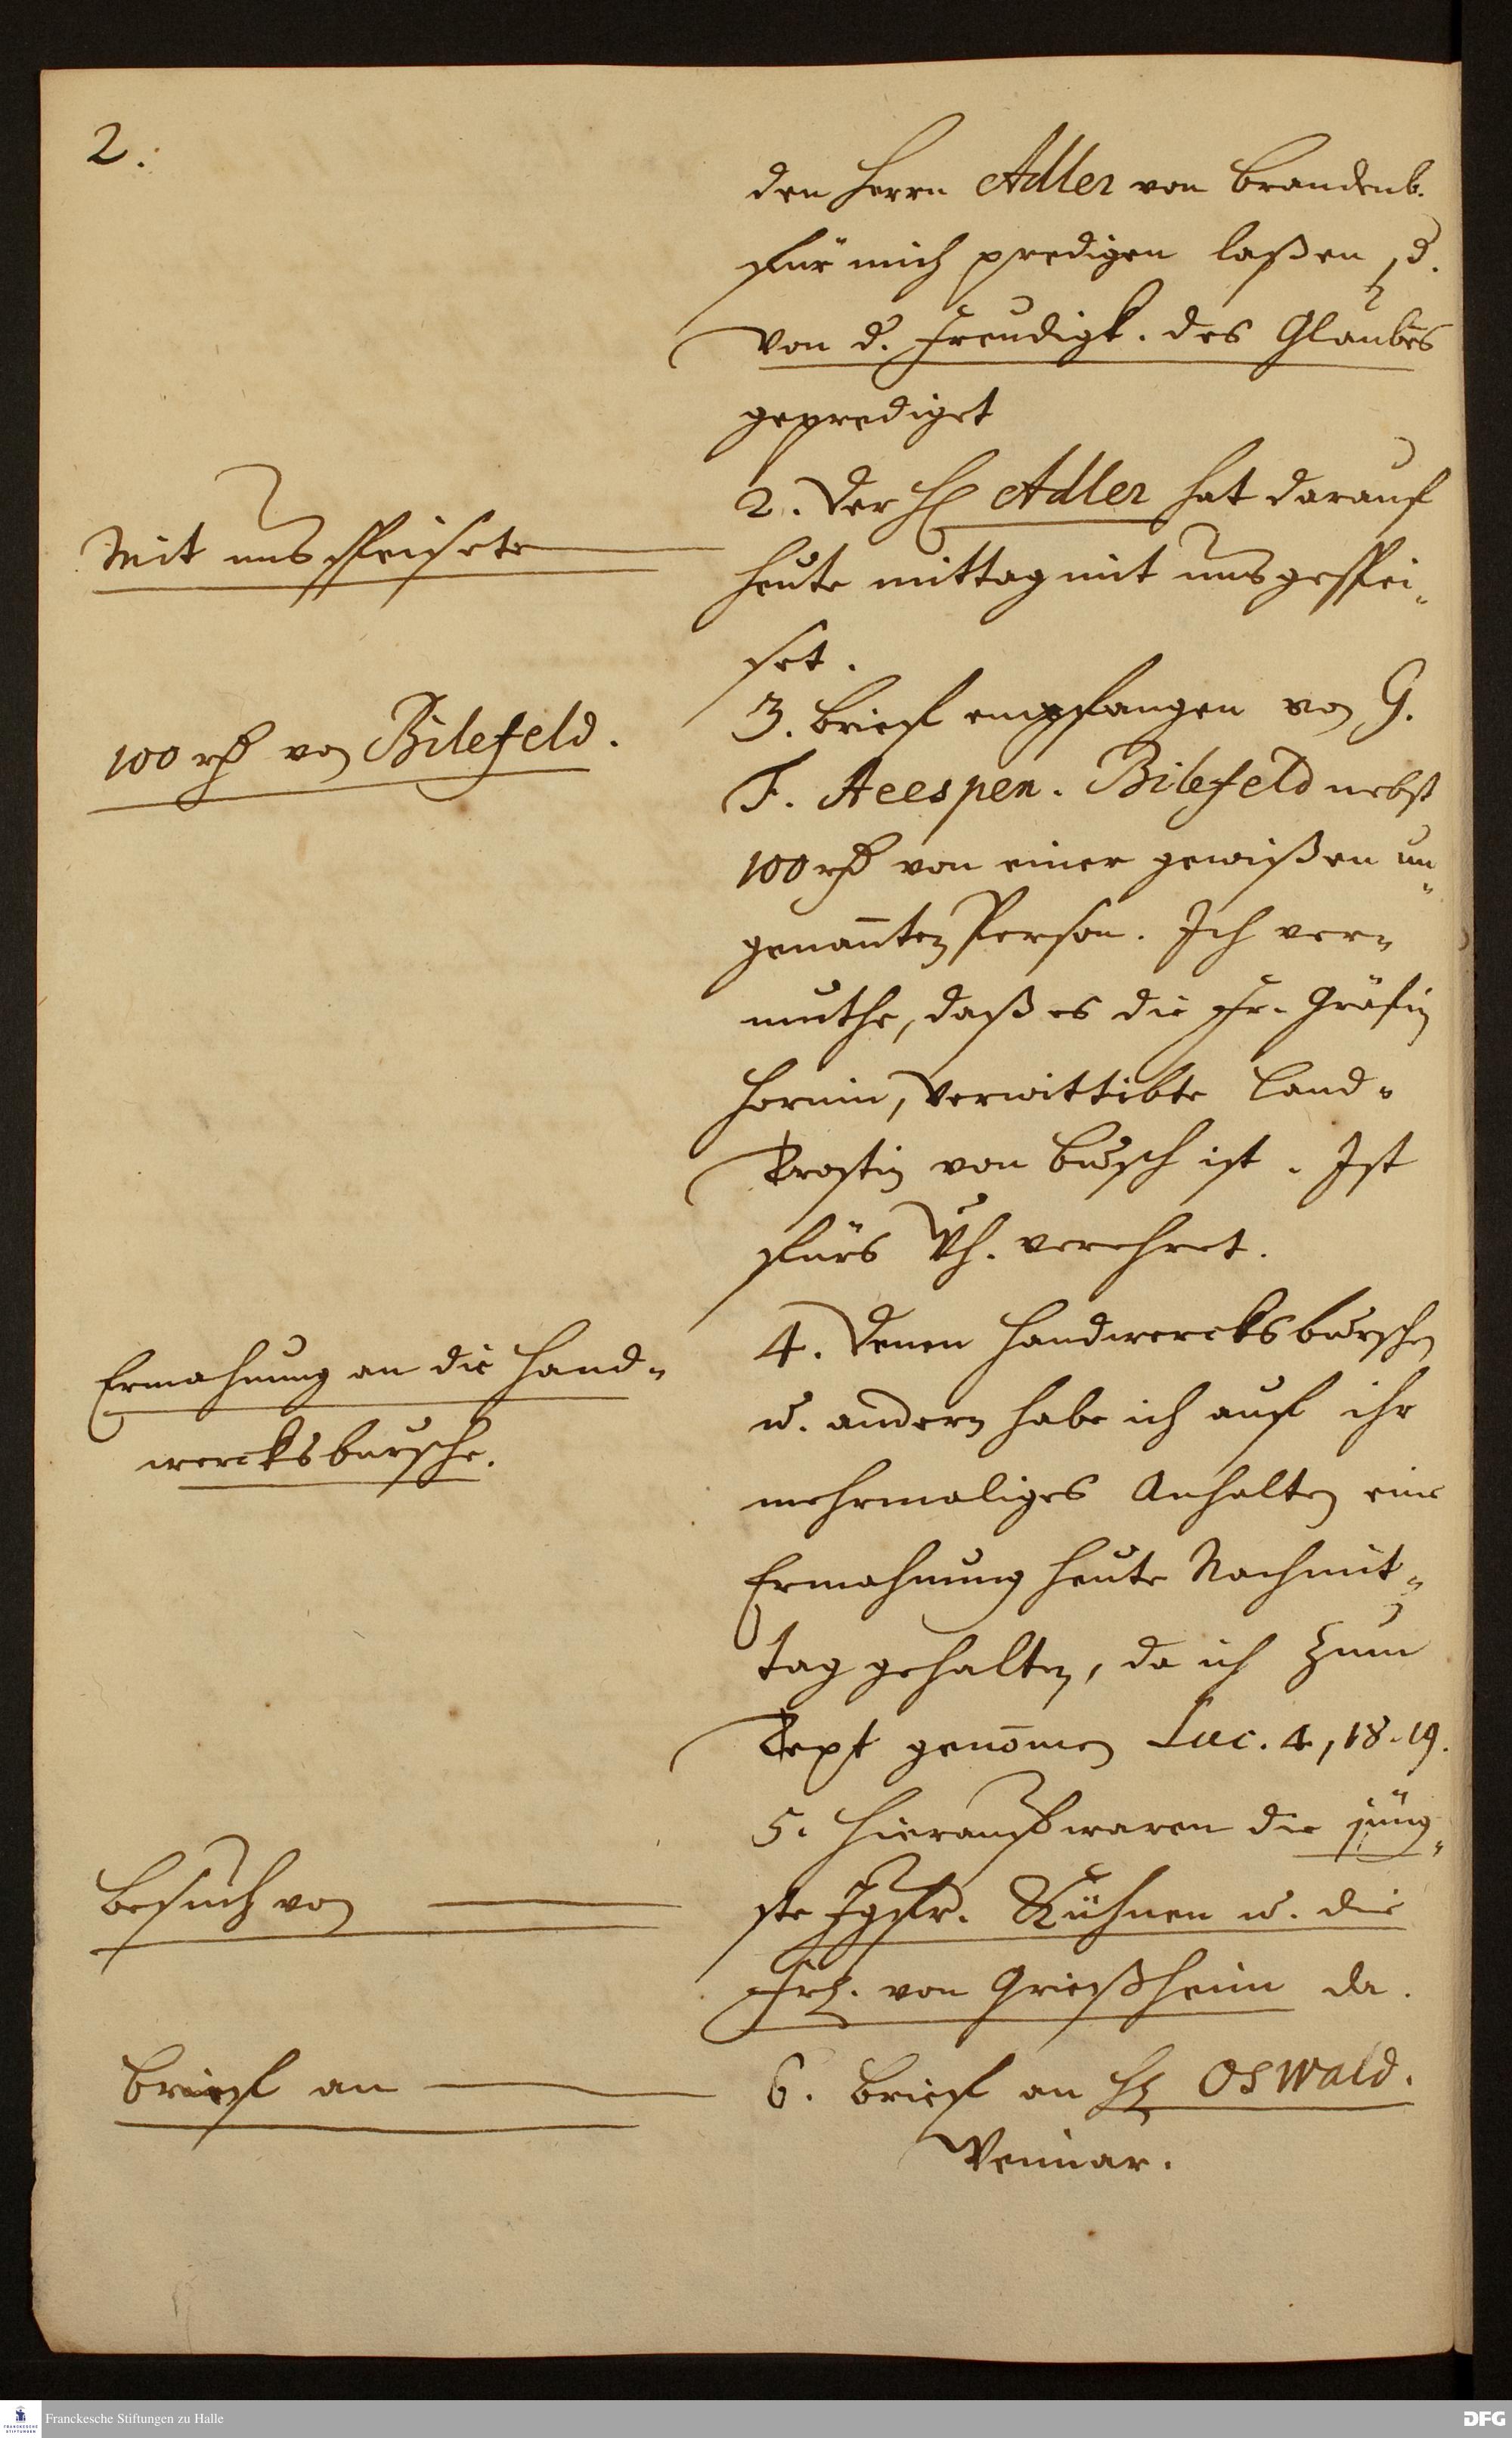 2.
den Herrn Adler von Brandenb.
für mich predigen laßen, d.
von d. Freudigk. des Glaubes
geprediget
Mit uns speisete
2. Der H Adler hat darauf
heute mittag mit uns gespei-
set.
100 rh von Bilefeld.
3. Brief empfangen von G.
F. Heespen. Bilefeld nebst
100 rh von einer gewißen un-
genanten Person. Ich ver-
muthe, daß es die Fr. Gräfin
Hornin, verwittibte Land-
Drostin von Busch ist. Ist
fürs Wh. verehret.
Ermahnung an die Hand-
wercksbursche.
4. Denen Handwercksburschen
u. andern habe ich auf ihr
mehrmaliges Anhalten eine
Ermahnung heute Nachmit-
tag gehalten, da ich zum
Text genomen Luc. 4, 18.19.
Besuch von
5. Hierauf waren die jüng-
ste Jgfr. Kühnen u. die
Frl. von Grießheim da.
Brief an
6. Brief an H Oswald.
Weimar.
Franckesche Stiftungen zu Halle
DFG